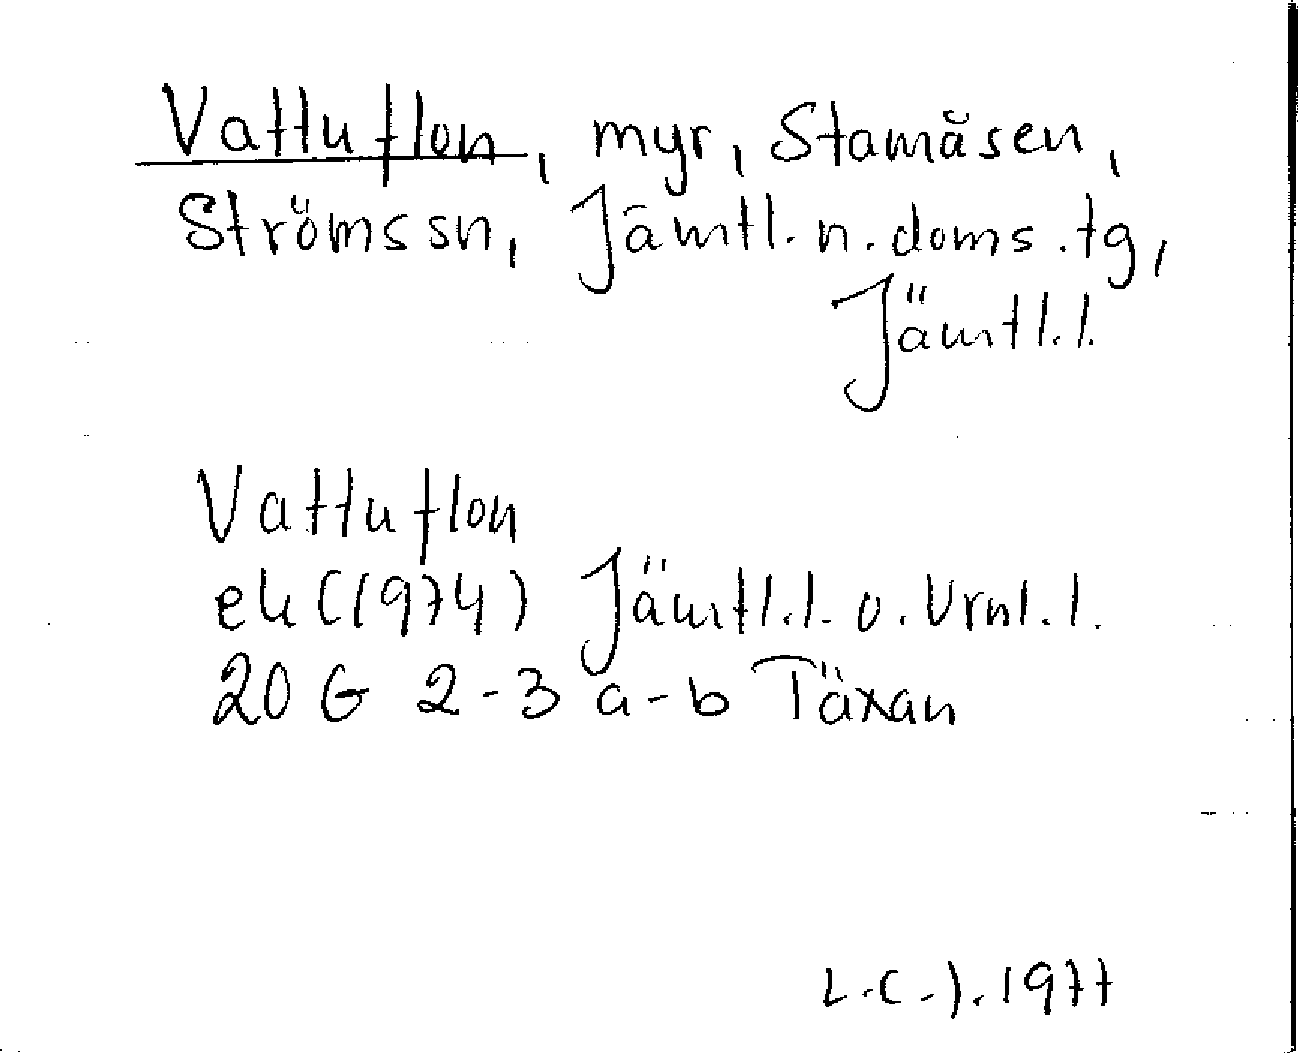 Vattuflon, myr, Stamåsen,
Ströms sn, Jämtl. n. doms. tg,
Jämtl. l.
Vattuflon
ek (1974) Jämtl. l. o. Vrnl. l.
20 G 2-3 a-b Täxan
L.C.J. 1977